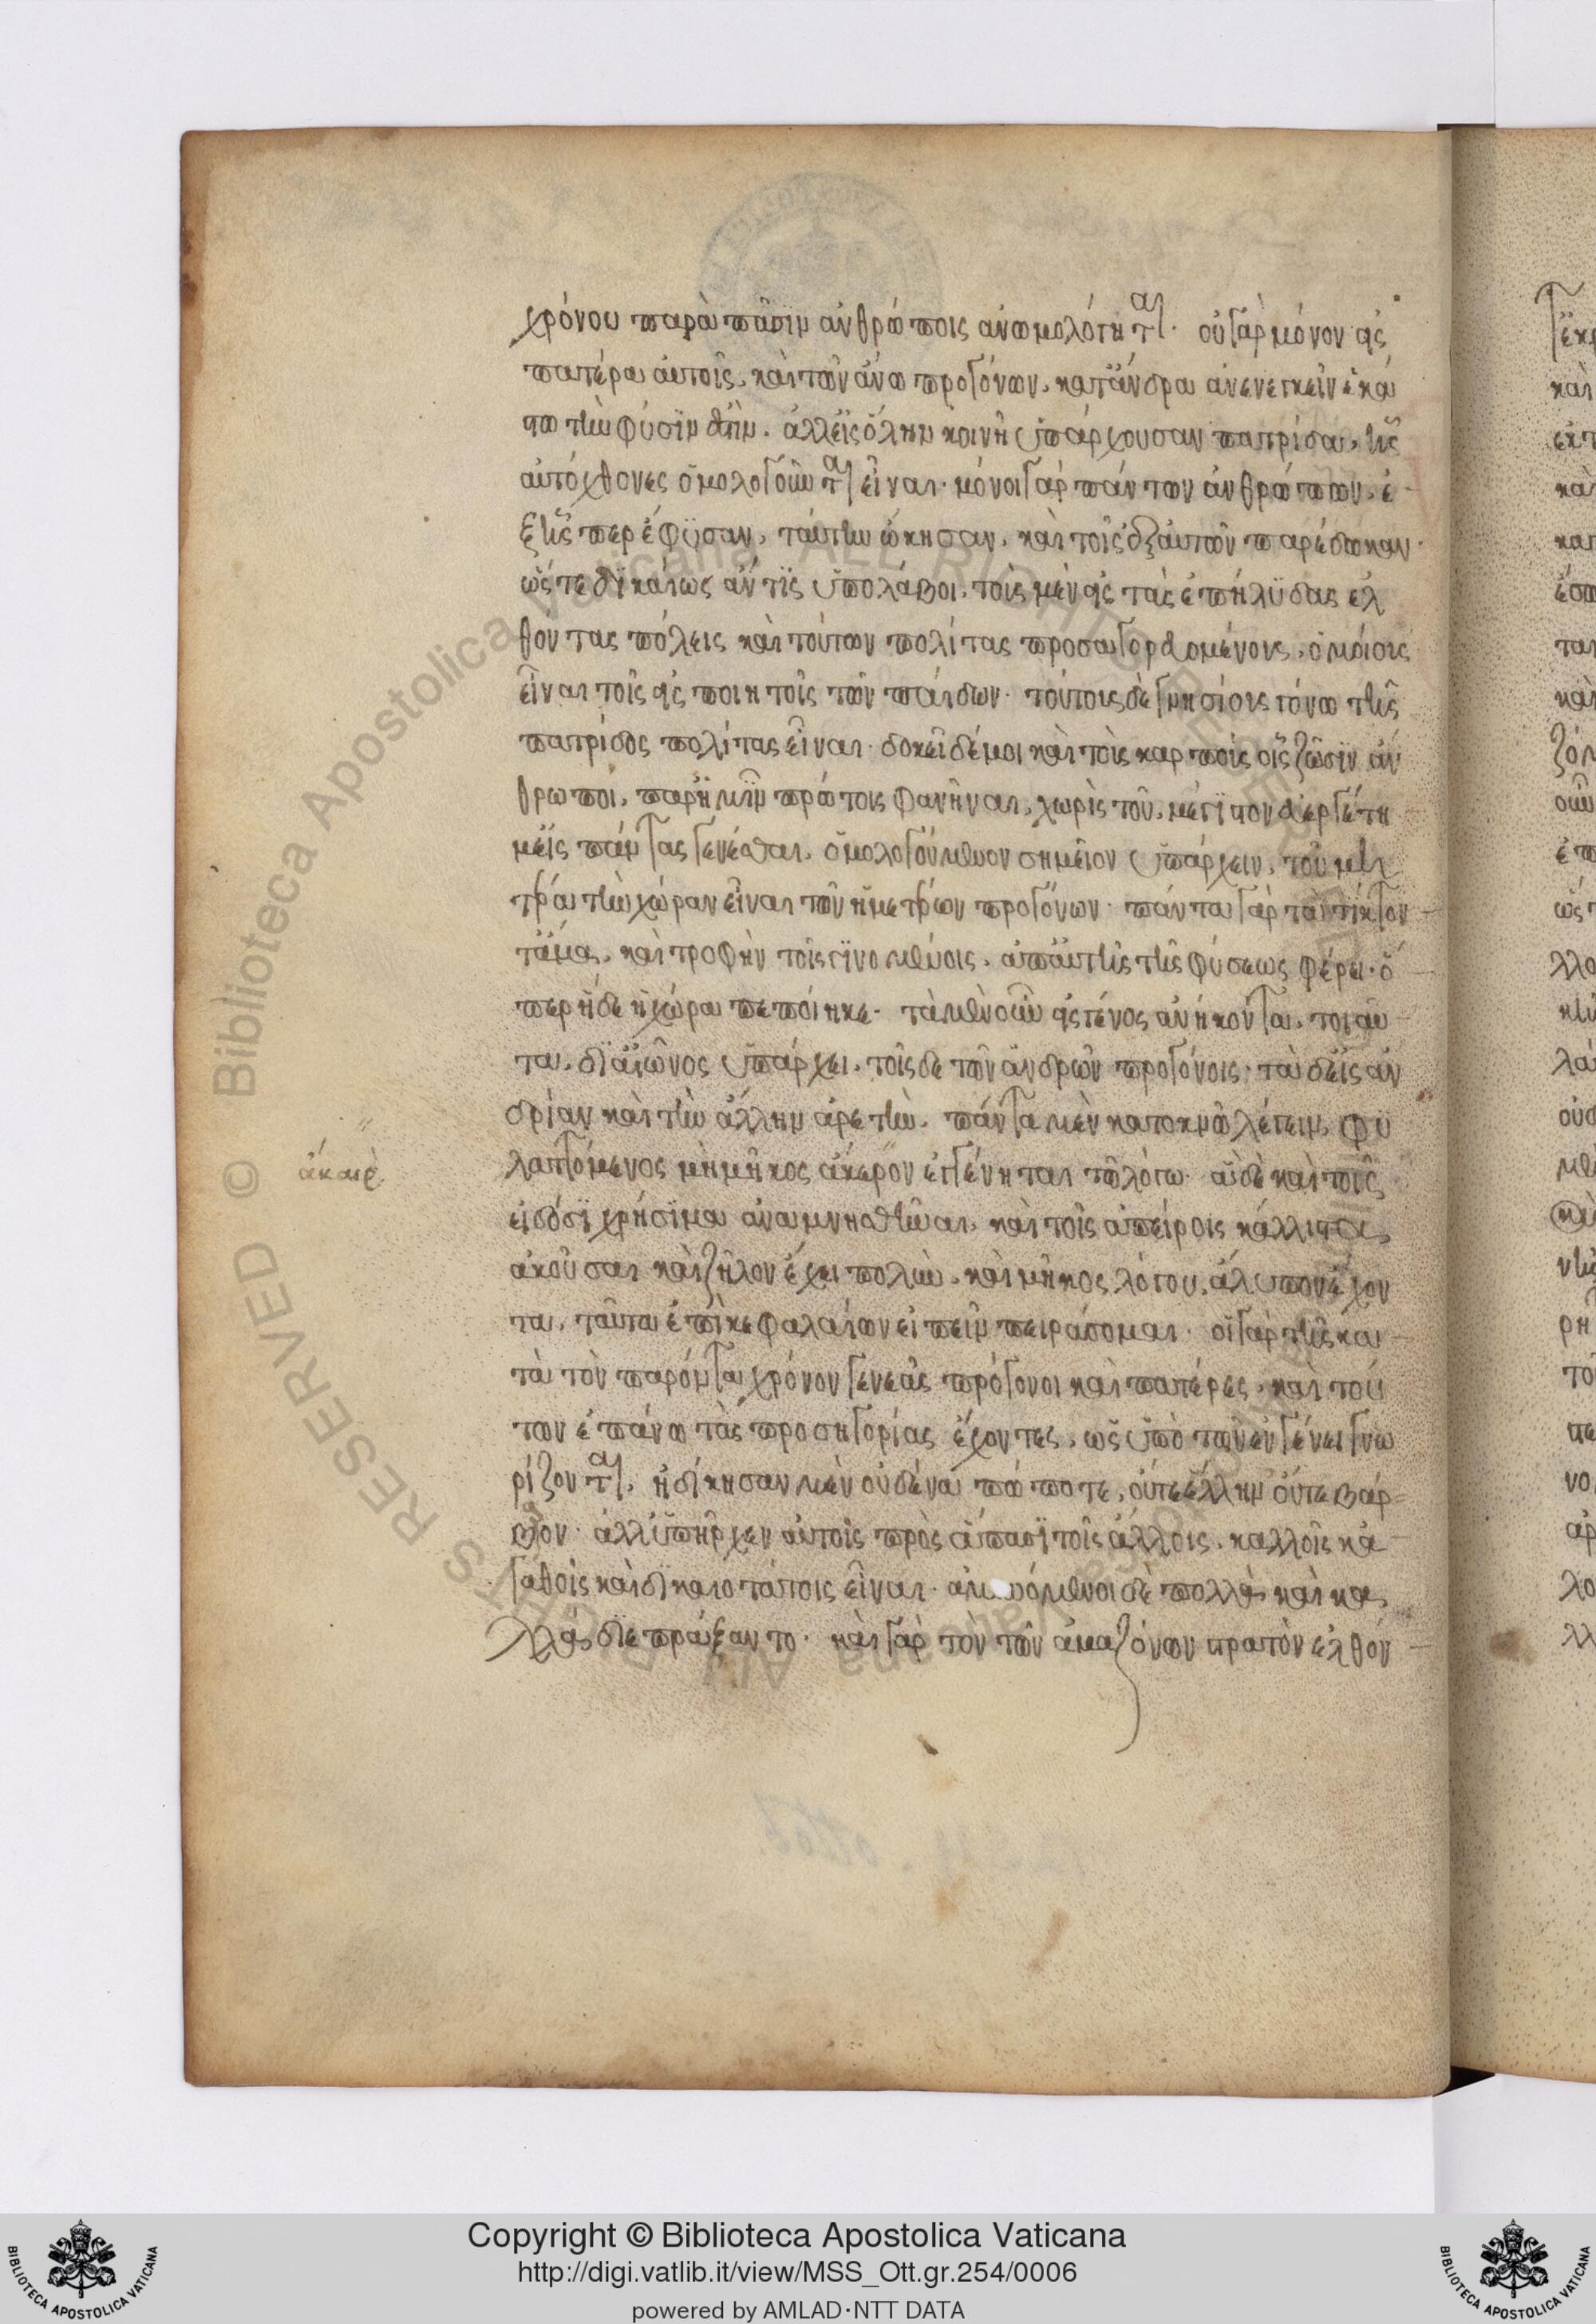 χρόνου παρὰ πᾶσιν ἀνθρώποις ἀνωμολόγηται. οὐ γὰρ μόνον εἰς
πατέρα αὐτοῖς, καὶ τῶν ἄνω προγόνων, κατ' ἄνδρα ἀνενεγκεῖν ἑκά
στω τὴν φύσιν ἔστιν. ἀλλ' εἰς ὅλην κοινῇ ὑπάρχουσαν πατρίδα, ἧς
αὐτόχθονες ὁμολογοῦνται εἶναι. μόνοι γὰρ πάντων ἀνθρώπων, ἐ
ξ ἧσπερ ἔφυσαν, ταύτην ᾤκησαν, καὶ τοῖς ἐξ αὐτῶν παρέδωκαν.
ὥστε δικαίως ἄν τις ὑπολάβοι, τοὺς μὲν εἰς τὰς ἐπήλυδας ἐλ
θόντας πόλεις καὶ τούτων πολίτας προσαγορευομένους, ὁμοίους
εἶναι τοῖς εἰς ποιητοῖς τῶν παίδων. τούτους δὲ γνησίους γόνω τῆς
πατρίδος πολίτας εἶναι. δοκεῖ δέ μοι καὶ τὸ τοὺς καρποὺς οἷς ζῶσιν ἄν
θρωποι, παρ' ἡμῖν πρώτοις φανῆναι, χωρὶς τοῦ, μέγιστον εὐεργέτη
μ' εἰς πάντας γενέσθαι, ὁμολογούμενον σημεῖον ὑπάρχειν, τοῦ μη
τέρα τὴν χώραν εἶναι τῶν ἡμετέρων προγόνων. πάντα γὰρ τὰ τίκτον
τα ἅμα, καὶ τροφὴν τοῖς γινομένοις, ἀπ' αὐτῆς τῆς φύσεως φέρει. ὅ
περ ἥδε ἡ χώρα πεποίηκε. τὰ μὲν οὖν εἰς γένος ἀνήκοντα, τοιαῦ
τα, δι' αἰῶνος ὑπάρχει, τοῖσδε τῶν ἀνδρῶν προγόνοις. τὰ δ' εἰς ἀν
δρίαν καὶ τὴν ἄλλην ἀρετὴν, πάντα μὲν κατοκνῶ λέγειν, φυ
λαττόμενος μὴ μῆκος ἄκερον ἐγγένηται τῶ λόγω. ἃ δὲ καὶ τοῖς
ἀκαιρ
εἰδόσι χρήσιμα ἀναμνησθῆναι, καὶ τοῖς ἀπείροις κάλλιστα
ἀκοῦσαι καὶ ζῆλον ἔχει πολὺν, καὶ μῆκος λόγου, ἄλυπον ἔχον
τα, ταῦτα ἐπὶ κεφαλαίων εἰπεῖν πειράσομαι. οἱ γὰρ τῆς κα
τὰ τὸν παρόντα χρόνον γενεᾶς πρόγονοι καὶ πατέρες, καὶ τού
των ἐπάνω τὰς προσηγορίας ἔχοντες, ὡς ὑπὸ τῶν ἐν γένει γνω
ρίζονται, ἠδίκησαν μὲν οὐδένα πώποτε, οὔτε ἕλλην' οὔτε βάρ
βαρον. ἀλλ' ὑπῆρχεν αὐτοῖς πρὸς ἅπασι τοῖς ἄλλοις, καλλοῖς κἀ
γαθοῖς καὶ δικαιοτάτοις εἶναι. ἀμυνόμενοι δὲ πολλὰ καὶ κα
λλὰ διεπράξαντο. καὶ γὰρ τὸν τῶν ἀμαζόνων στρατὸν ἐλθόν
Copyright © Biblioteca Apostolica Vaticana
http://digi.vatlib.it/view/MSS_Ott.gr.254/0006
powered by AMLAD·NTT DATA